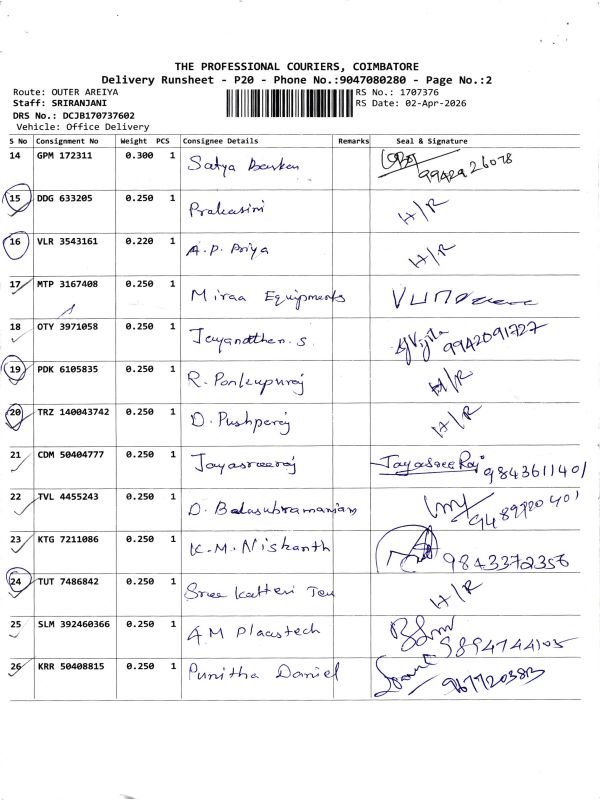 THE PROFESSIONAL COURIERS, COIMBATORE
Delivery Runsheet - P20 - Phone No.:9047080280 - Page No.:2
Route: OUTER AREIYA RS No.: 1707376
Staff: SRIRANJANI RS Date: 02-Apr-2026
DRS No.: DCJB170737602
Vehicle: Office Delivery
S No Consignment No Weight PCS Consignee Details Remarks Seal & Signature
14 GPM 172311 0.300 1 Satya 9942926078
15 DDG 633205 0.250 1 Prakasini H/R
16 VLR 3543161 0.220 1 A.P. Priya H/R
17 MTP 3167408 0.250 1 Miraa Equipments
18 OTY 3971058 0.250 1 9942091727
19 PDK 6105835 0.250 1 R. H/R
20 TRZ 140043742 0.250 1 D. Pushparaj H/R
21 CDM 50404777 0.250 1 Jayasreeraj JayasreeRaj 9843611401
22 TVL 4455243 0.250 1 D. Balasubramaniam
23 KTG 7211086 0.250 1 K.M. Nishanth 9843372356
24 TUT 7486842 0.250 1 Sree H/R
25 SLM 392460366 0.250 1 A.M Plaastech 9894744105
26 KRR 50408815 0.250 1 Punitha Daniel